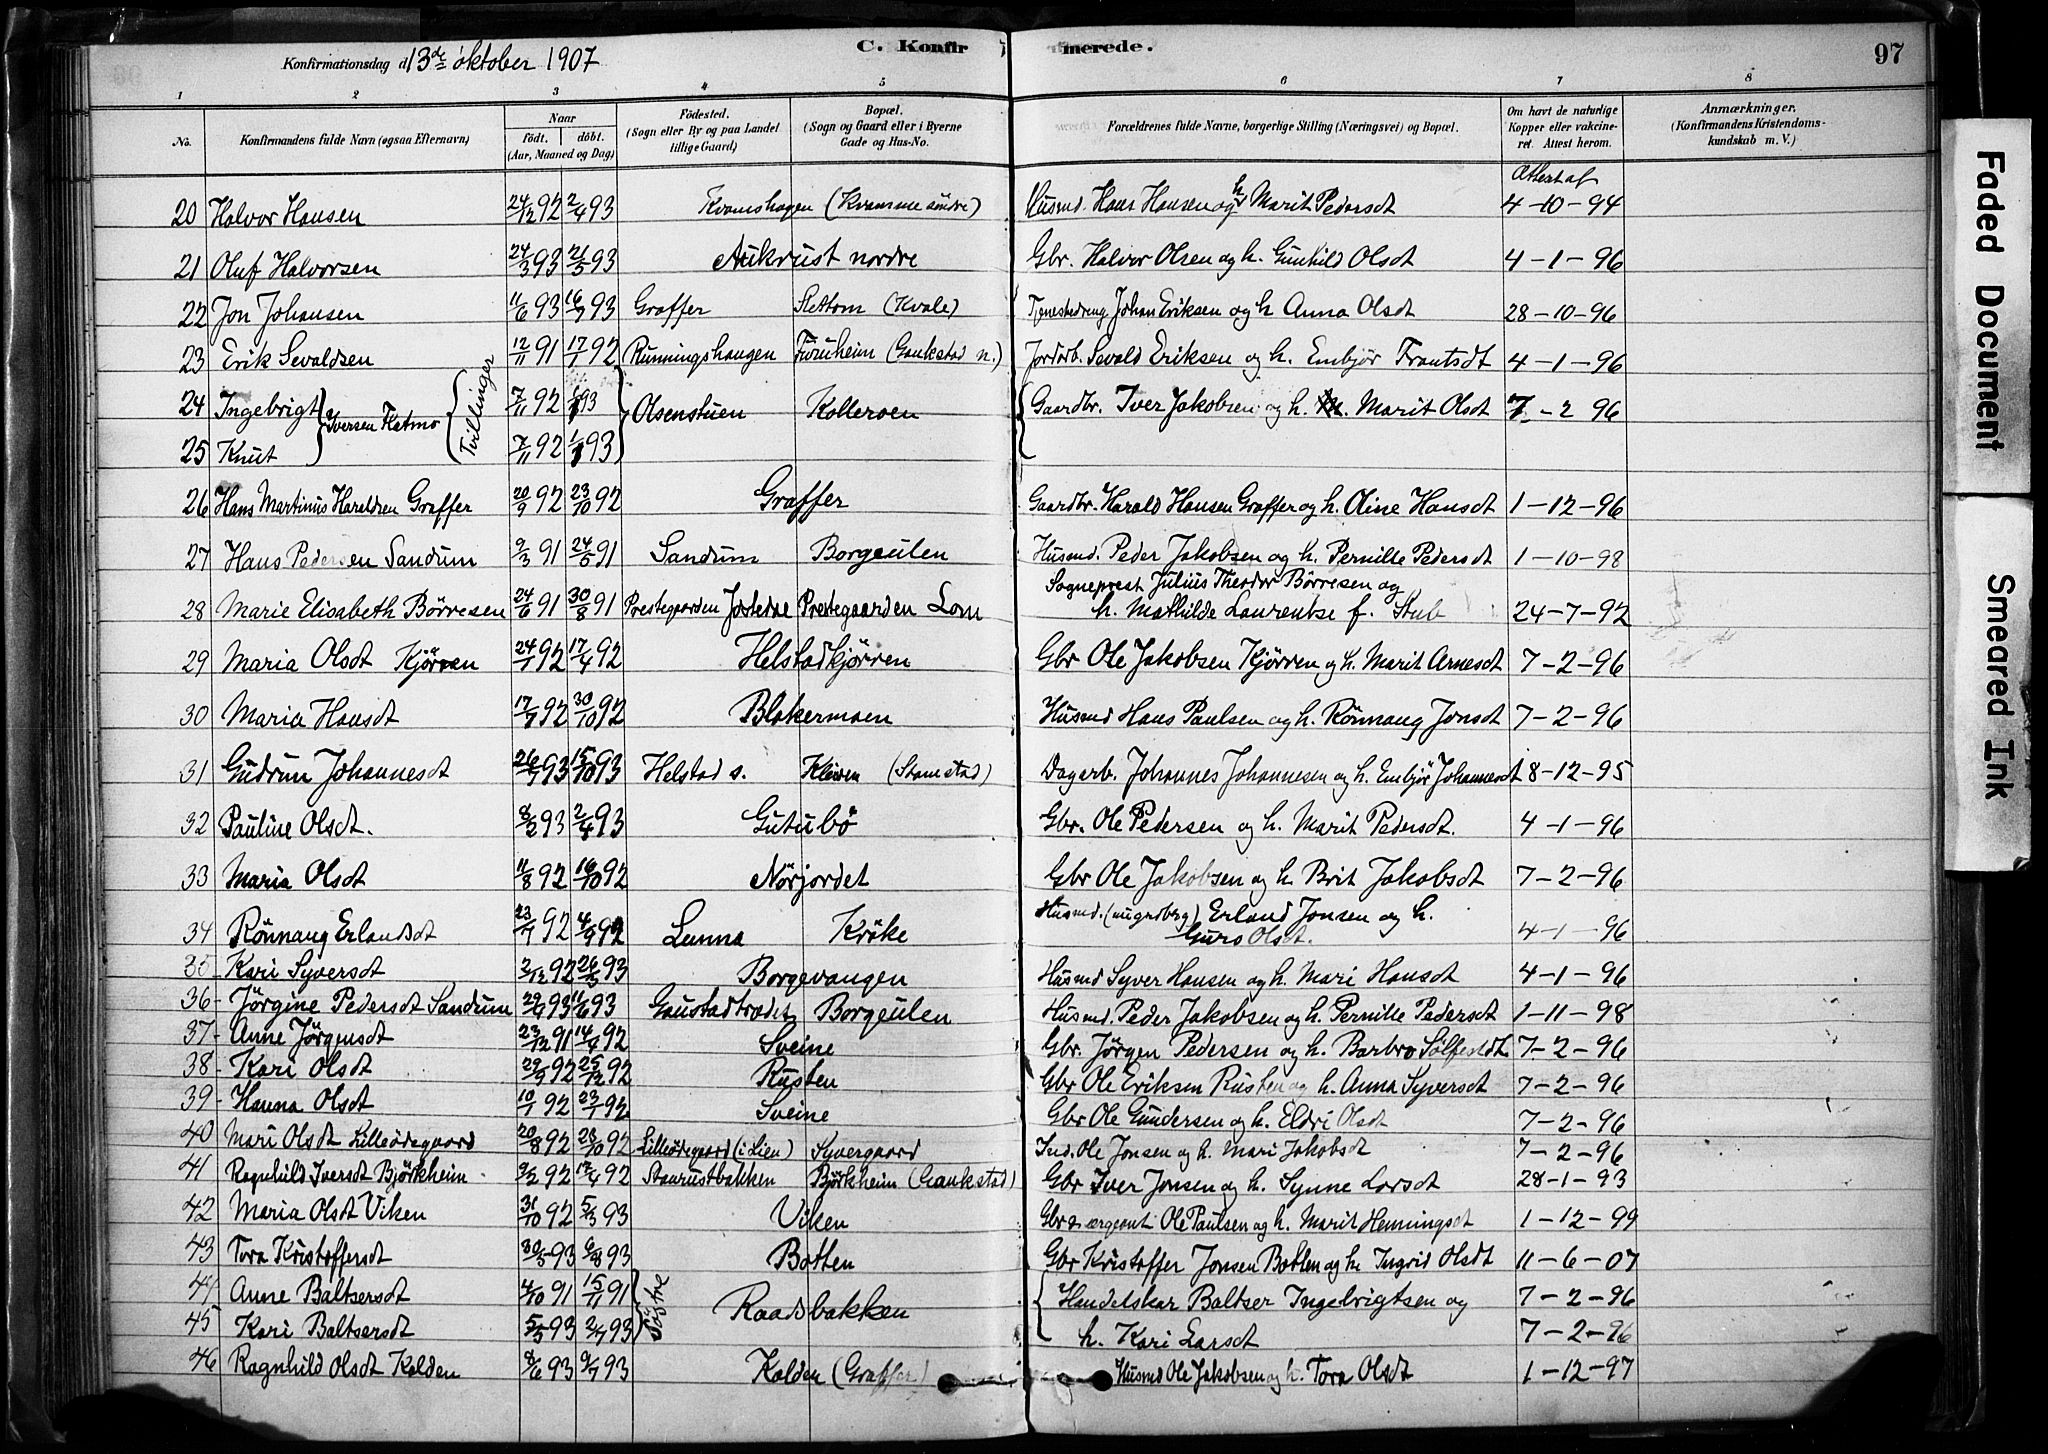 C. Konfirmerede.
97
Konfirmationsdag d. 13de oktober 1907
1 2 3 4 5 6 7 8
No. Konfirmandens fulde Navn (ogsaa Efternavn) Naar Født. døbt. (Aar, Maaned og Dag) Födested. (Sogn eller By og paa Landet tillige Gaard) Bopæl. (Sogn og Gaard eller i Byerne Gade og Hus-No. Forældrenes fulde Navne, borgerlige Stilling (Næringsvei) og Bopæl. Om havt de naturlige Kopper eller vakcineret. Attest herom. Anmærkninger. (Konfirmandens Kristendomskundskab m. V.)
Attest af
20 Halvor Hansen 24/12 92 2/4 93 Kvamshagen (Kvamme söndre) Husmd. Hans Hansen og h. Marit Pedersdt 4-10-94
21 Oluf Halvorsen 24/3 93 21/5 93 Aukrust nordre Gbr. Halvor Olsen og h. Gunhild Olsdt 4-1-96
22 Jon Johansen 11/6 93 16/7 93 Graffer Slettom (Kvale) Tjenestedreng Johan Eriksen og h Anna Olsdt 28-10-96
23 Erik Sevaldsen 12/11 91 17/1 92 Runningshaugen Furuheim (Gaukstad n.) Jordarb. Sevald Eriksen og h. Embjör Frantsdt 4-1-96
24 Ingebrigt } Iversen Flatmo { Tvillinger 7/11 92 1/1 93 } Olsenstuen Kolleroen { Gaardbr. Iver Jakobsen og h. Marit Olsdt 7-2 96
25 Knut 7/11 92 1/1 93
26 Hans Martinus Haraldsen Graffer 20/9 92 23/10 92 Graffer Gaardbr. Harald Hansen Graffer og h. Oline Hansdt 1-12-96
27 Hans Pedersen Sandum 9/3 91 24/5 91 Sandum Borgeulen Husmd. Peder Jakobsen og h. Pernille Pedersdt 1-10-98
28 Marie Elisabeth Börresen 24/6 91 30/8 91 Prestegaarden Jostedne Prestegaarden Lom Sogneprest Julius Theodor Börresen og
h. Mathilde Laurentse f. Stub 24-7-92
29 Maria Olsdt Kjörren 24/1 92 17/4 92 Helstadkjörren Gbr Ole Jakobsen Kjörren og h. Marit Arnesdt 7-2-96
30 Maria Hansdt 17/7 92 30/10 92 Blakermoen Husmd Hans Paulsen og h. Rönnaug Jonsdt 7-2-96
31 Gudrun Johannesdt 26/7 93 15/10 93 Helstad s. Kleiven (Stamstad) Dagarb. Johannes Johannesen og h. Embjör Johannesdt 8-12-95
32 Pauline Olsdt. 8/2 93 2/4 93 Gutubö Gbr. Ole Pedersen og h. Marit Pedersdt. 4-1-96
33 Maria Olsdt 11/8 92 16/10 92 Nörjordet Gbr Ole Jakobsen og h Brit Jakobsdt 7-2-96
34 Rönnaug Erlandsdt 23/7 92 4/9 92 Lunna Kröke Husmd. Erland Jonsen og h.
Guro Olsdt. 4-1-96
35 - Kari Syversdt 2/12 92 26/3 93 Borgevangen Husmd Syver Hansen og h. Mari Hansdt 4-1-96
36 - Jörgine Pedersdt Sandum 29/4 93 11/6 93 Gaustadtrædet Borgeulen Husmd. Peder Jakobsen og h. Pernille Pedersdt 1-11-98
37 - Anne Jörgensdt 23/12 91 14/4 92 Sveine Gbr. Jörgen Pedersen og h. Barbro Sölfestdt 7-2-96
38 - Kari Olsdt 29/9 92 25/12 92 Rusten Gbr Ole Eriksen Rusten og h. Anna Syversdt 7-2-96
39 - Hanna Olsdt 10/1 92 23/1 92 Sveine Gbr Ole Gundersen og h. Eldri Olsdt 7-2-96
40 Mari Olsdt Lilleödegaard 20/8 92 23/10 92 Lilleödegaard (i Lien) Syvergaard Ind. Ole Jonsen og h. Mari Jakobsdt 7-2-96
41 Ragnhild Iversdt Björkheim 9/2 92 17/4 92 Staurustbakken Björkheim (Gaukstad) Gbr Iver Jonsen og h. Synne Larsdt 28-1-93
42 Maria Olsdt Viken 31/10 92 5/3 93 Viken Gbr sergeant Ole Paulsen og h. Marit Henningsdt 1-12-99
43 Tora Kristoffersdt 30/5 93 6/8 93 Botten Gbr Kristoffer Jonsen Botten og h. Ingrid Olsdt 11-6-07
44 Anne Baltsersdt 4/10 91 15/11 91 } Söstre Raadsbakken { Handelskar Baltser Ingebrigtsen og 7-2-96
45 Kari Baltsersdt 5/5 93 2/7 93 h. Kari Larsdt 7-2-96
46 Ragnhild Olsdt Kolden 8/6 93 9/7 93 Kolden (Graffer) Husmd Ole Jakobsen og h. Tora Olsdt 1-12-97
Faded Document
Smeared Ink